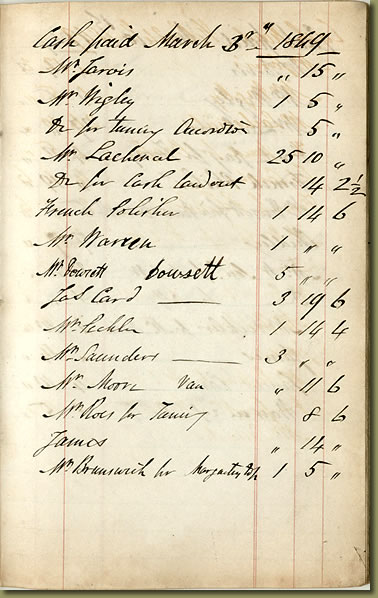 Cash paid March 3rd " 1849
Mr Jarvis " 15 "
Mr Wigley 1 5 "
Do for tuning Accordion 5 "
Mr Lachenal 25 10 "
Do for Cash laid out 14 2½
French Polisher 1 14 6
Mr Warren 1 " "
Mr Dowsett Dowsett 5 " "
Jas Card —— 3 19 6
Mr 1 14 4
Mr Saunders —— 3 " "
Mr Moore Van " 11 6
Mr Roes for Tuning 8 6
James " 14 "
Mr Brunswick for 1 5 "